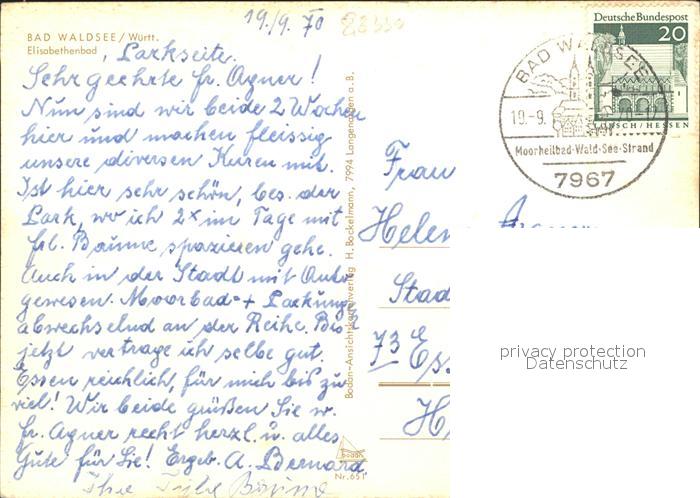 19./9. 70 28330
BAD WALDSEE / Württ.
Elisabethenbad
, Parkseite.
Sehr geehrte fr. Agner!
Nun sind wir beide 2 Wochen
hier und machen fleissig
unsere diversen Kuren mit.
Ist hier sehr schön, bes. der
Park, wo ich 2x im Tage mit
frl. Bäume spazieren gehe.
Auch in der Stadt mit Auto
gewesen. Moorbad + Packunge
abwechselnd an der Reihe. Bis
jetzt vertrage ich selbe gut.
Essen reichlich, für mich bis zu
viel! Wir beide grüßen Sie w.
fr. Agner recht herzl. u. alles
Gute für Sie! Ergeb. A. Bernard
Ihre
Bodan-Ansichtskartenverlag H. Bockelmann, 7994 Langenargen a. B.
bodan
Nr. 651
Deutsche Bundespost
20
LORSCH / HESSEN
BAD WALDSEE
19.-9.
Moorheilbad-Wald-See-Strand
7967
Frau
Helen
Stad
73 Es
H
privacy protection
Datenschutz